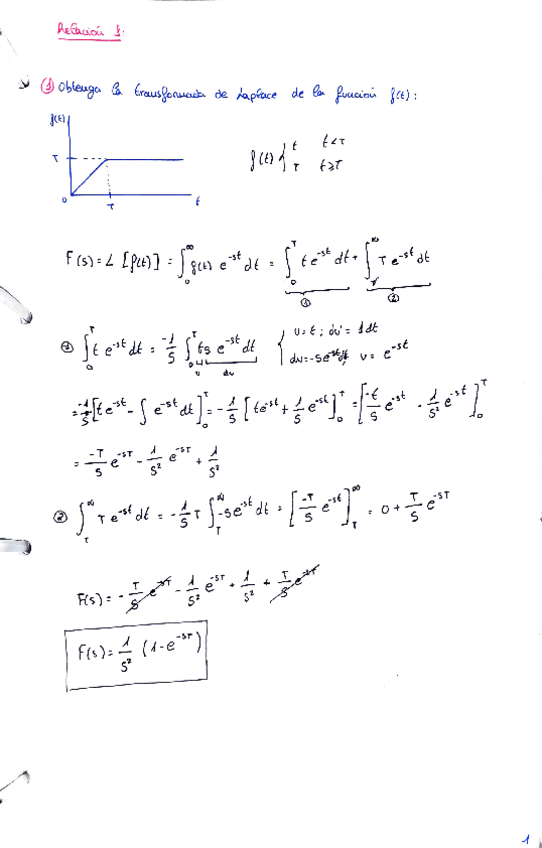 Relación 1.
① Obtenga la transformada de Laplace de la función f(t):
f(t)
T
0 T t
f(t) { t t<T
T t≥T
F(s) = L [f(t)] = ∫₀^∞ f(t) e^-st dt = ∫₀^T t e^-st dt + ∫_T^∞ T e^-st dt
① ②
① ∫₀^T t e^-st dt = -1/s ∫₀^T t s e^-st dt { u = t ; du = 1 dt
u dv dv = -s e^-st dt, v = e^-st
= -1/s [t e^-st - ∫ e^-st dt]₀^T = -1/s [t e^-st + 1/s e^-st]₀^T = [-t/s e^-st - 1/s² e^-st]₀^T
= -T/s e^-sT - 1/s² e^-sT + 1/s²
② ∫_T^∞ T e^-st dt = -1/s T ∫_T^∞ -s e^-st dt = [-T/s e^-st]_T^∞ = 0 + T/s e^-sT
F(s) = - T/s e^-sT - 1/s² e^-sT + 1/s² + T/s e^-sT
F(s) = 1/s² (1 - e^-sT)
1